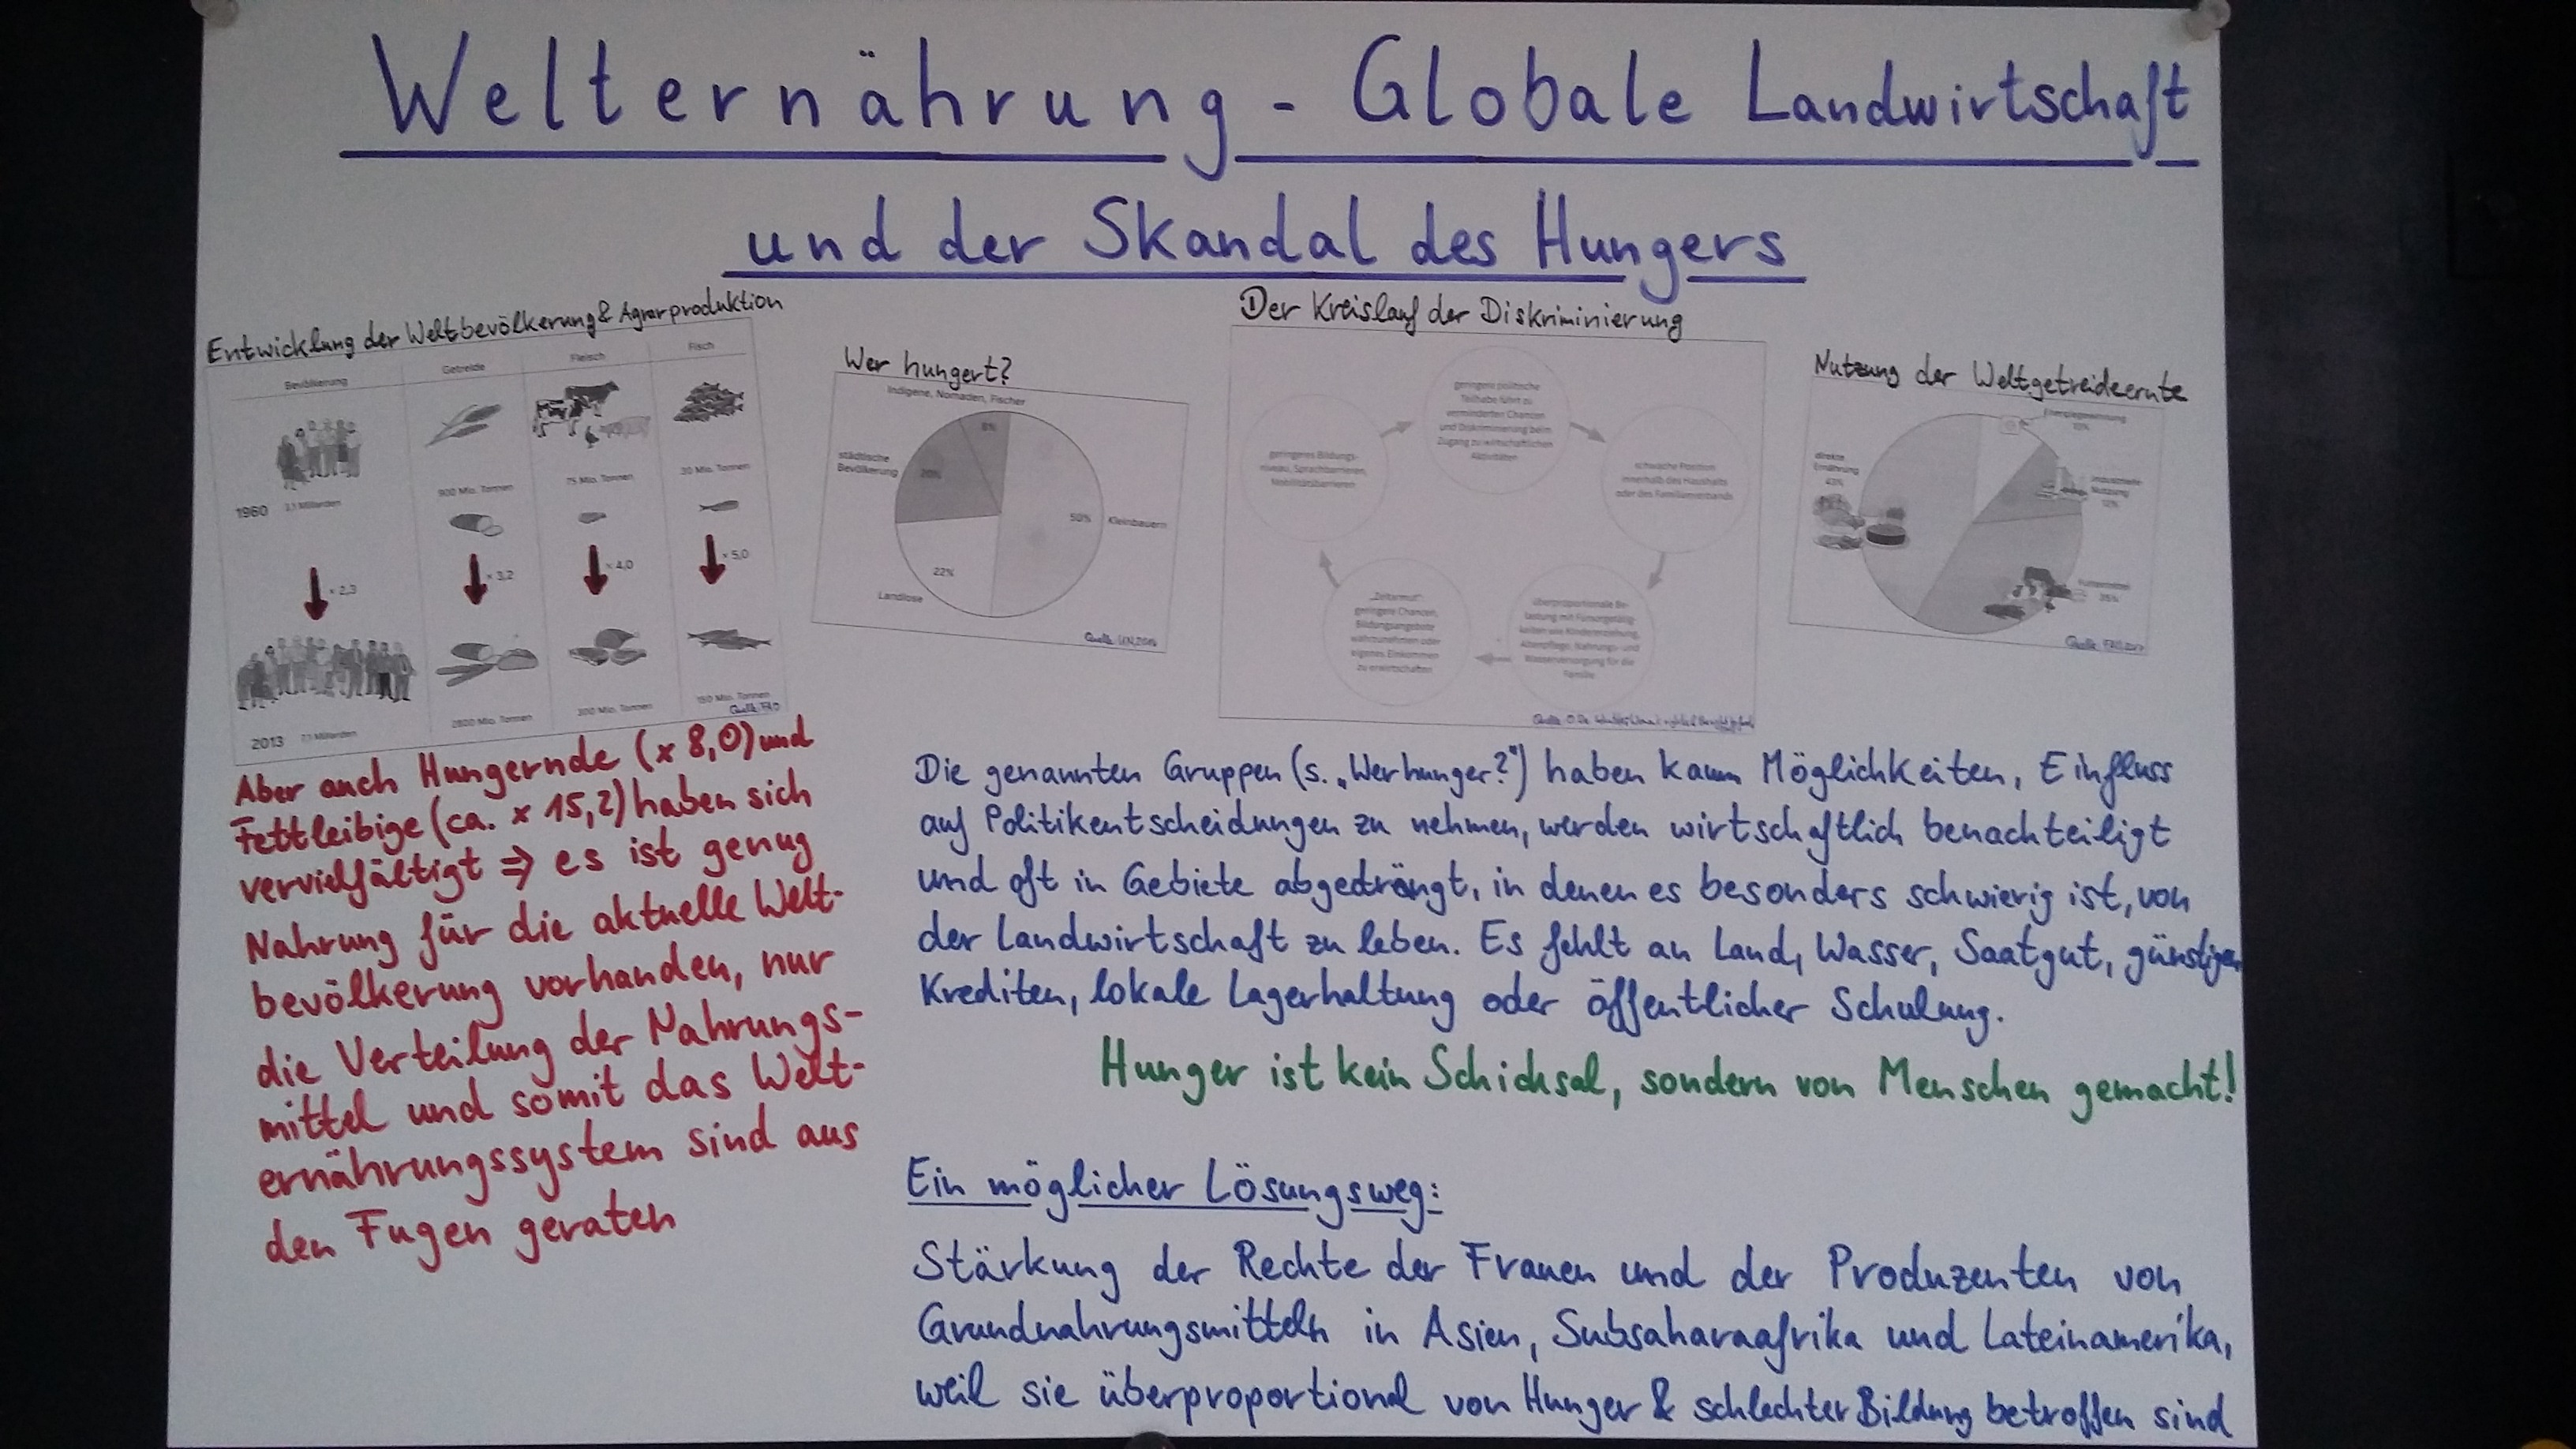 Welternährung - Globale Landwirtschaft
und der Skandal des Hungers
Entwicklung der Weltbevölkerung & Agrarproduktion
Bevölkerung
Getreide
Fleisch
Fisch
1960
3,1 Milliarden
900 Mio. Tonnen
75 Mio. Tonnen
30 Mio. Tonnen
× 2,3
× 3,2
× 4,0
× 5,0
2013
7,1 Milliarden
2800 Mio. Tonnen
300 Mio. Tonnen
150 Mio. Tonnen
Quelle: FAO
Wer hungert?
Indigene, Nomaden, Fischer
8%
städtische
Bevölkerung
20%
50%
Kleinbauern
22%
Landlose
Quelle: UN,
Der Kreislauf der Diskriminierung
geringere politische
Teilhabe führt zu
verminderten Chancen
und Diskriminierung beim
Zugang zu wirtschaftlichen
Aktivitäten
schwache Position
innerhalb des Haushalts
oder des Familienverbands
überproportionale Be-
lastung mit Fürsorgetätig-
keiten wie Kindererziehung,
Altenpflege, Nahrungs- und
Wasserversorgung für die
Familie
„Zeitarmut“:
geringere Chancen,
Bildungsangebote
wahrzunehmen oder
eigenes Einkommen
zu erwirtschaften
geringeres Bildungs-
niveau, Sprachbarrieren,
Mobilitätsbarrieren
Quelle:
Nutzung der Weltgetreideernte
Energiegewinnung
10%
direkte
Ernährung
43%
industrielle
Nutzung
12%
Futtermittel
35%
Quelle: FAO
Aber auch Hungernde (x 8,0) und
Fettleibige (ca. x 15,2) haben sich
vervielfältigt ⇒ es ist genug
Nahrung für die aktuelle Welt-
bevölkerung vorhanden, nur
die Verteilung der Nahrungs-
mittel und somit das Welt-
ernährungssystem sind aus
den Fugen geraten
Die genannten Gruppen (s. „Wer hunger?") haben kaum Möglichkeiten, Einfluss
auf Politikentscheidungen zu nehmen, werden wirtschaftlich benachteiligt
und oft in Gebiete abgedrängt, in denen es besonders schwierig ist, von
der Landwirtschaft zu leben. Es fehlt an Land, Wasser, Saatgut, günstigen
Krediten, lokale Lagerhaltung oder öffentlicher Schulung.
Hunger ist kein Schicksal, sondern von Menschen gemacht!
Ein möglicher Lösungsweg:
Stärkung der Rechte der Frauen und der Produzenten von
Grundnahrungsmitteln in Asien, Subsaharaafrika und Lateinamerika,
weil sie überproportional von Hunger & schlechter Bildung betroffen sind